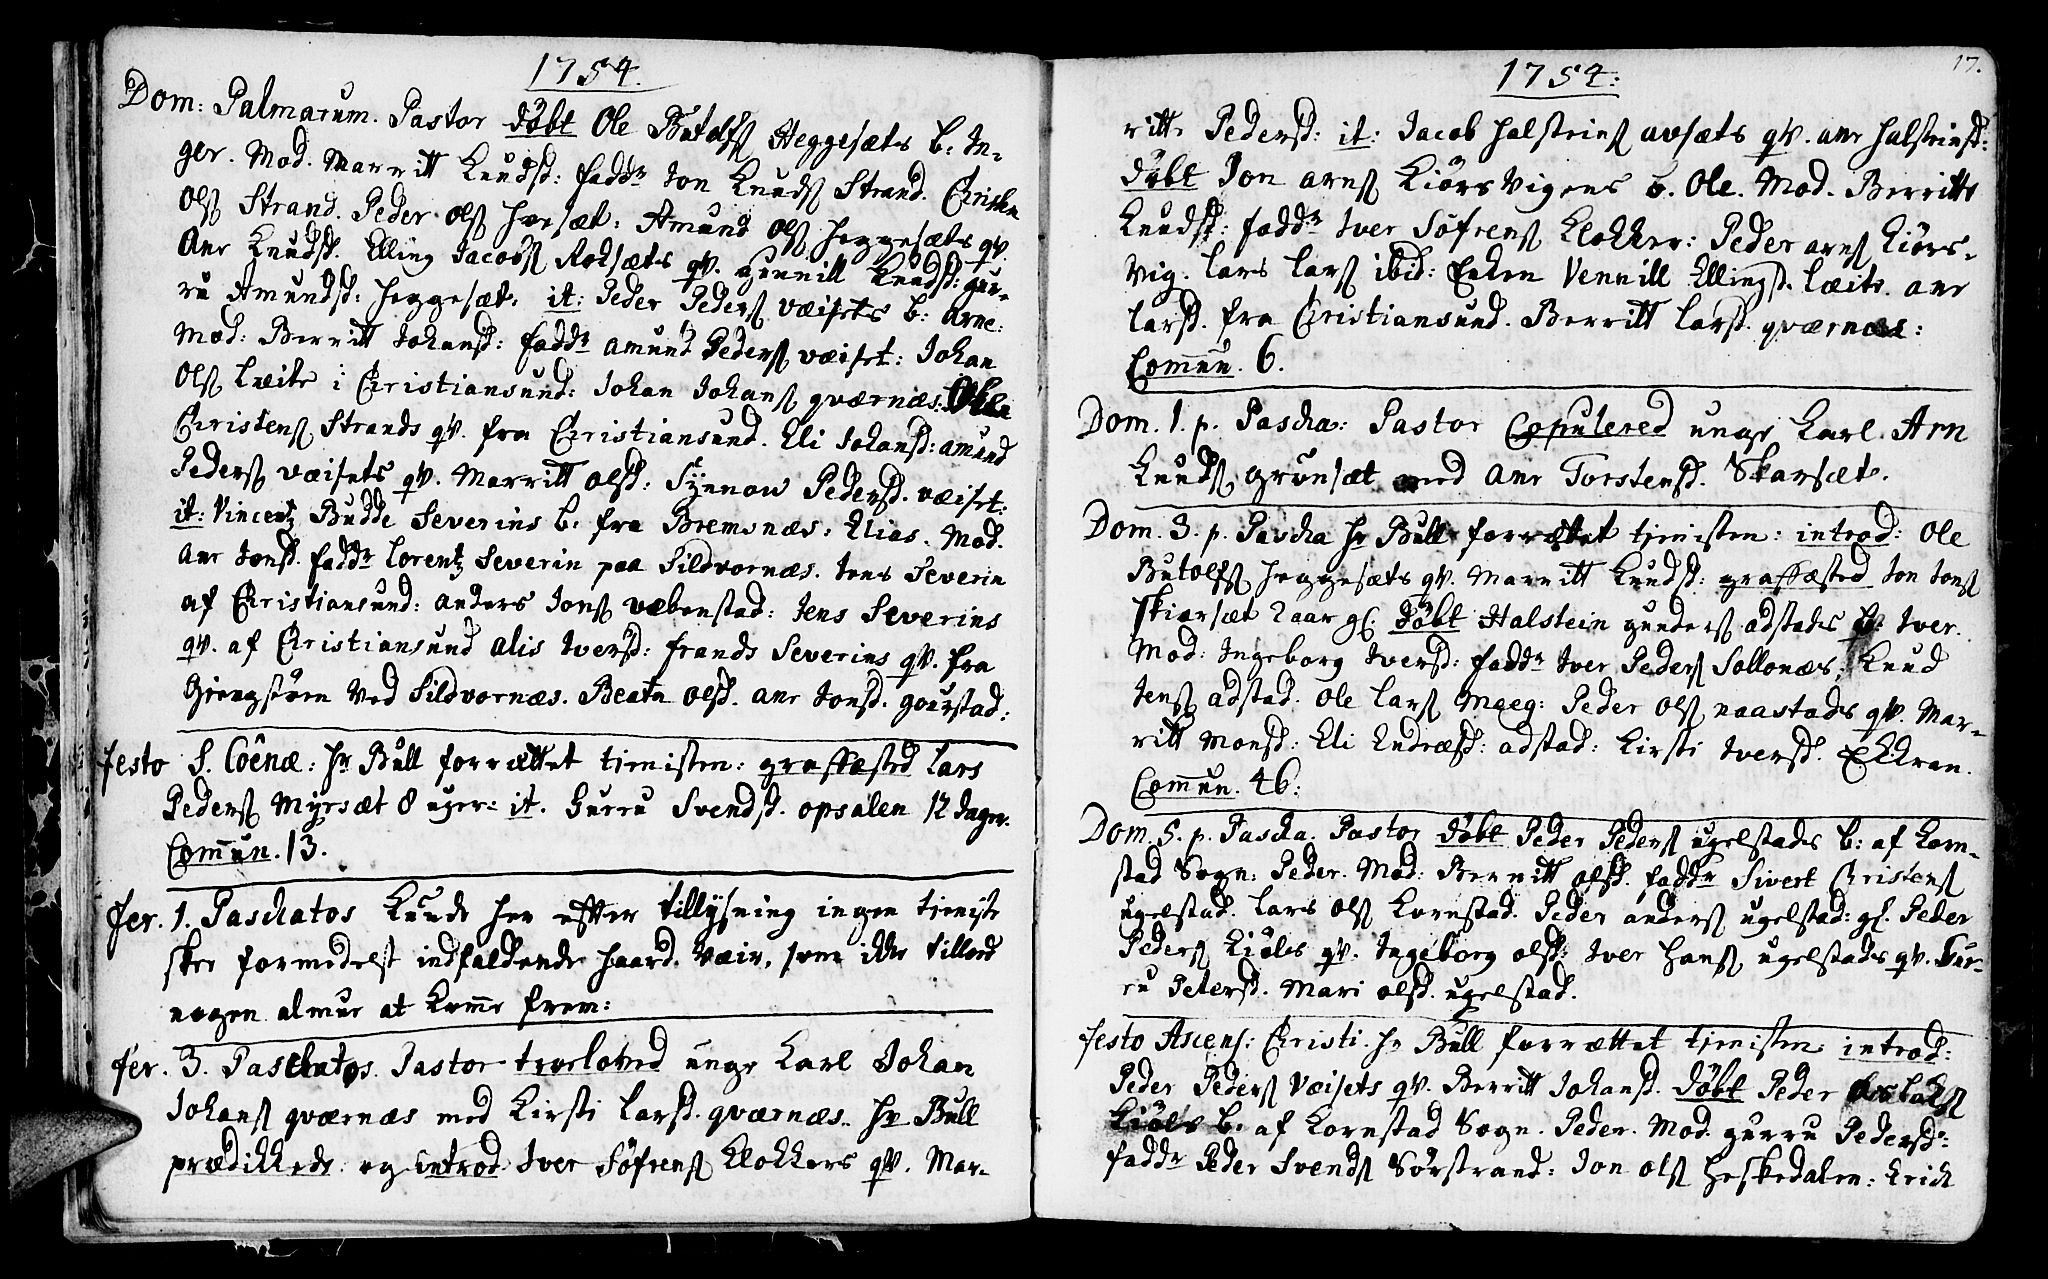 1754.
Dom: Palmarum. Pastor döbt Ole Butolfs Heggesæts b. In-
ger. Mod. Marritt Knudsd: fadd.r Jon Knuds Strand. Christen
Ols Strand. Peder ols hæsæt: Amund Ols heggesæts qv.
Ane Knudsd. Elling Jacobs Roksæts qv. Gunnill Knudsd: gur-
ru Amundsd: heggesæt: it: Peder Peders væisets b: Arne:
Mod: Berritt Johansd: fadd.r amund Peders væiset: Johan
Ols Leite i Christiansund: Johan Johans qværnæs:
Christens Strands qv. fra Christiansund. Eli Johansd: amund
Peders væisets qv. Marritt olsd: Synnow Pedersd. væiset:
it: Vincentz Budde Severins b. fra Bremsnæs: Elias. Mod.
Ane Jonsd. fadd.r Lorentz Severin paa Sildvornæs. Jens Severin
af Christiansund: anders Jons væbenstad: Jens Severins
qv. af Christiansund alis Iversd: frands Severins qv. fra
ved Sildvornæs. Beata olsd. ane Jonsd. gourstad:
festo S. Cœnæ: hr Bull forrættet tienisten: graffæsted Lars
Peders Myrsæt 8 uger: it. Gurru Svendsd. opsalen 12 dager.
Commun. 13.
fer. 1. Paschatos kunde her efter tillysning ingen tieniste
skee formedelst indfaldende haard væir, som ikke tillod
nogen almue at komme frem:
fer. 3. Paschatos. Pastor troeloved unge karl Johan
Johans qværnæs med Kirsti Larsd. qværnæs. hr Bull
prædikkede og introd Iver Söfrens klokkers qv. Mar-
1754:
17.
ritte Pedersd: it: Jacob halsteins avsæts qv. ane halsteinsd:
döbt Jon arns Kiörsvigens b. Ole. Mod. Berritte
Knudsd: fadd.r Iver Söfrens klokker: Peder arns Kiörs-
vig. Lars Lars ibid: Enken Vennill Ellingsd. Læite. ane
Larsd. fra Christiansund. Berritt Larsd. qværnæs:
Commun. 6.
Dom. 1. p. Pascha: Pastor Copulered unge karl Arn
Knuds grönsæt med ane Torstensd. Skarsæt.
Dom. 3. p. Pascha hr Bull forrættet tienisten: introd: Ole
Butolfs heggesæts qv. Marritt Knudsd: graffæsted Jon Jons
skiarsæt 2 aar gl. döbt Halstein gunders adstads b: Iver.
Mod: Ingeborg Iversd: fadd.r Iver Peders Sollonæs: Knud
Jens adstad. Ole Lars Meeg: Peder Ols naastads qv. Mar-
ritt Monsd: Eli Endræsd: adstad: Kirsti Iversd. Ekkren.
Commun. 46:
Dom. 5. p. Pascha. Pastor döbt Peder Peders ugelstads b: af Korn-
stad Sogn: Peder. Mod: Berritt olsd. fadd.r Sivert Christens
ugelstad. Lars ols Kornstad. Peder anders ugelstad: gl. Peder
Peders Kiöls qv. Ingeborg olsd: Iver Hans ugelstads qv. Gur-
ru Petersd. Mari olsd. ugelstad.
festo Ascens: Christi. hr Bull forrættet tienisten: introd:
Peder Peders Væisets qv. Berritt Johansd. döbt Peder
Kiöls b. af Kornstad Sogn. Peder. Mod. gurru Pedersd:
fadd.r Peder Svends Sörstrand: Jon ols heskedalen: Erich